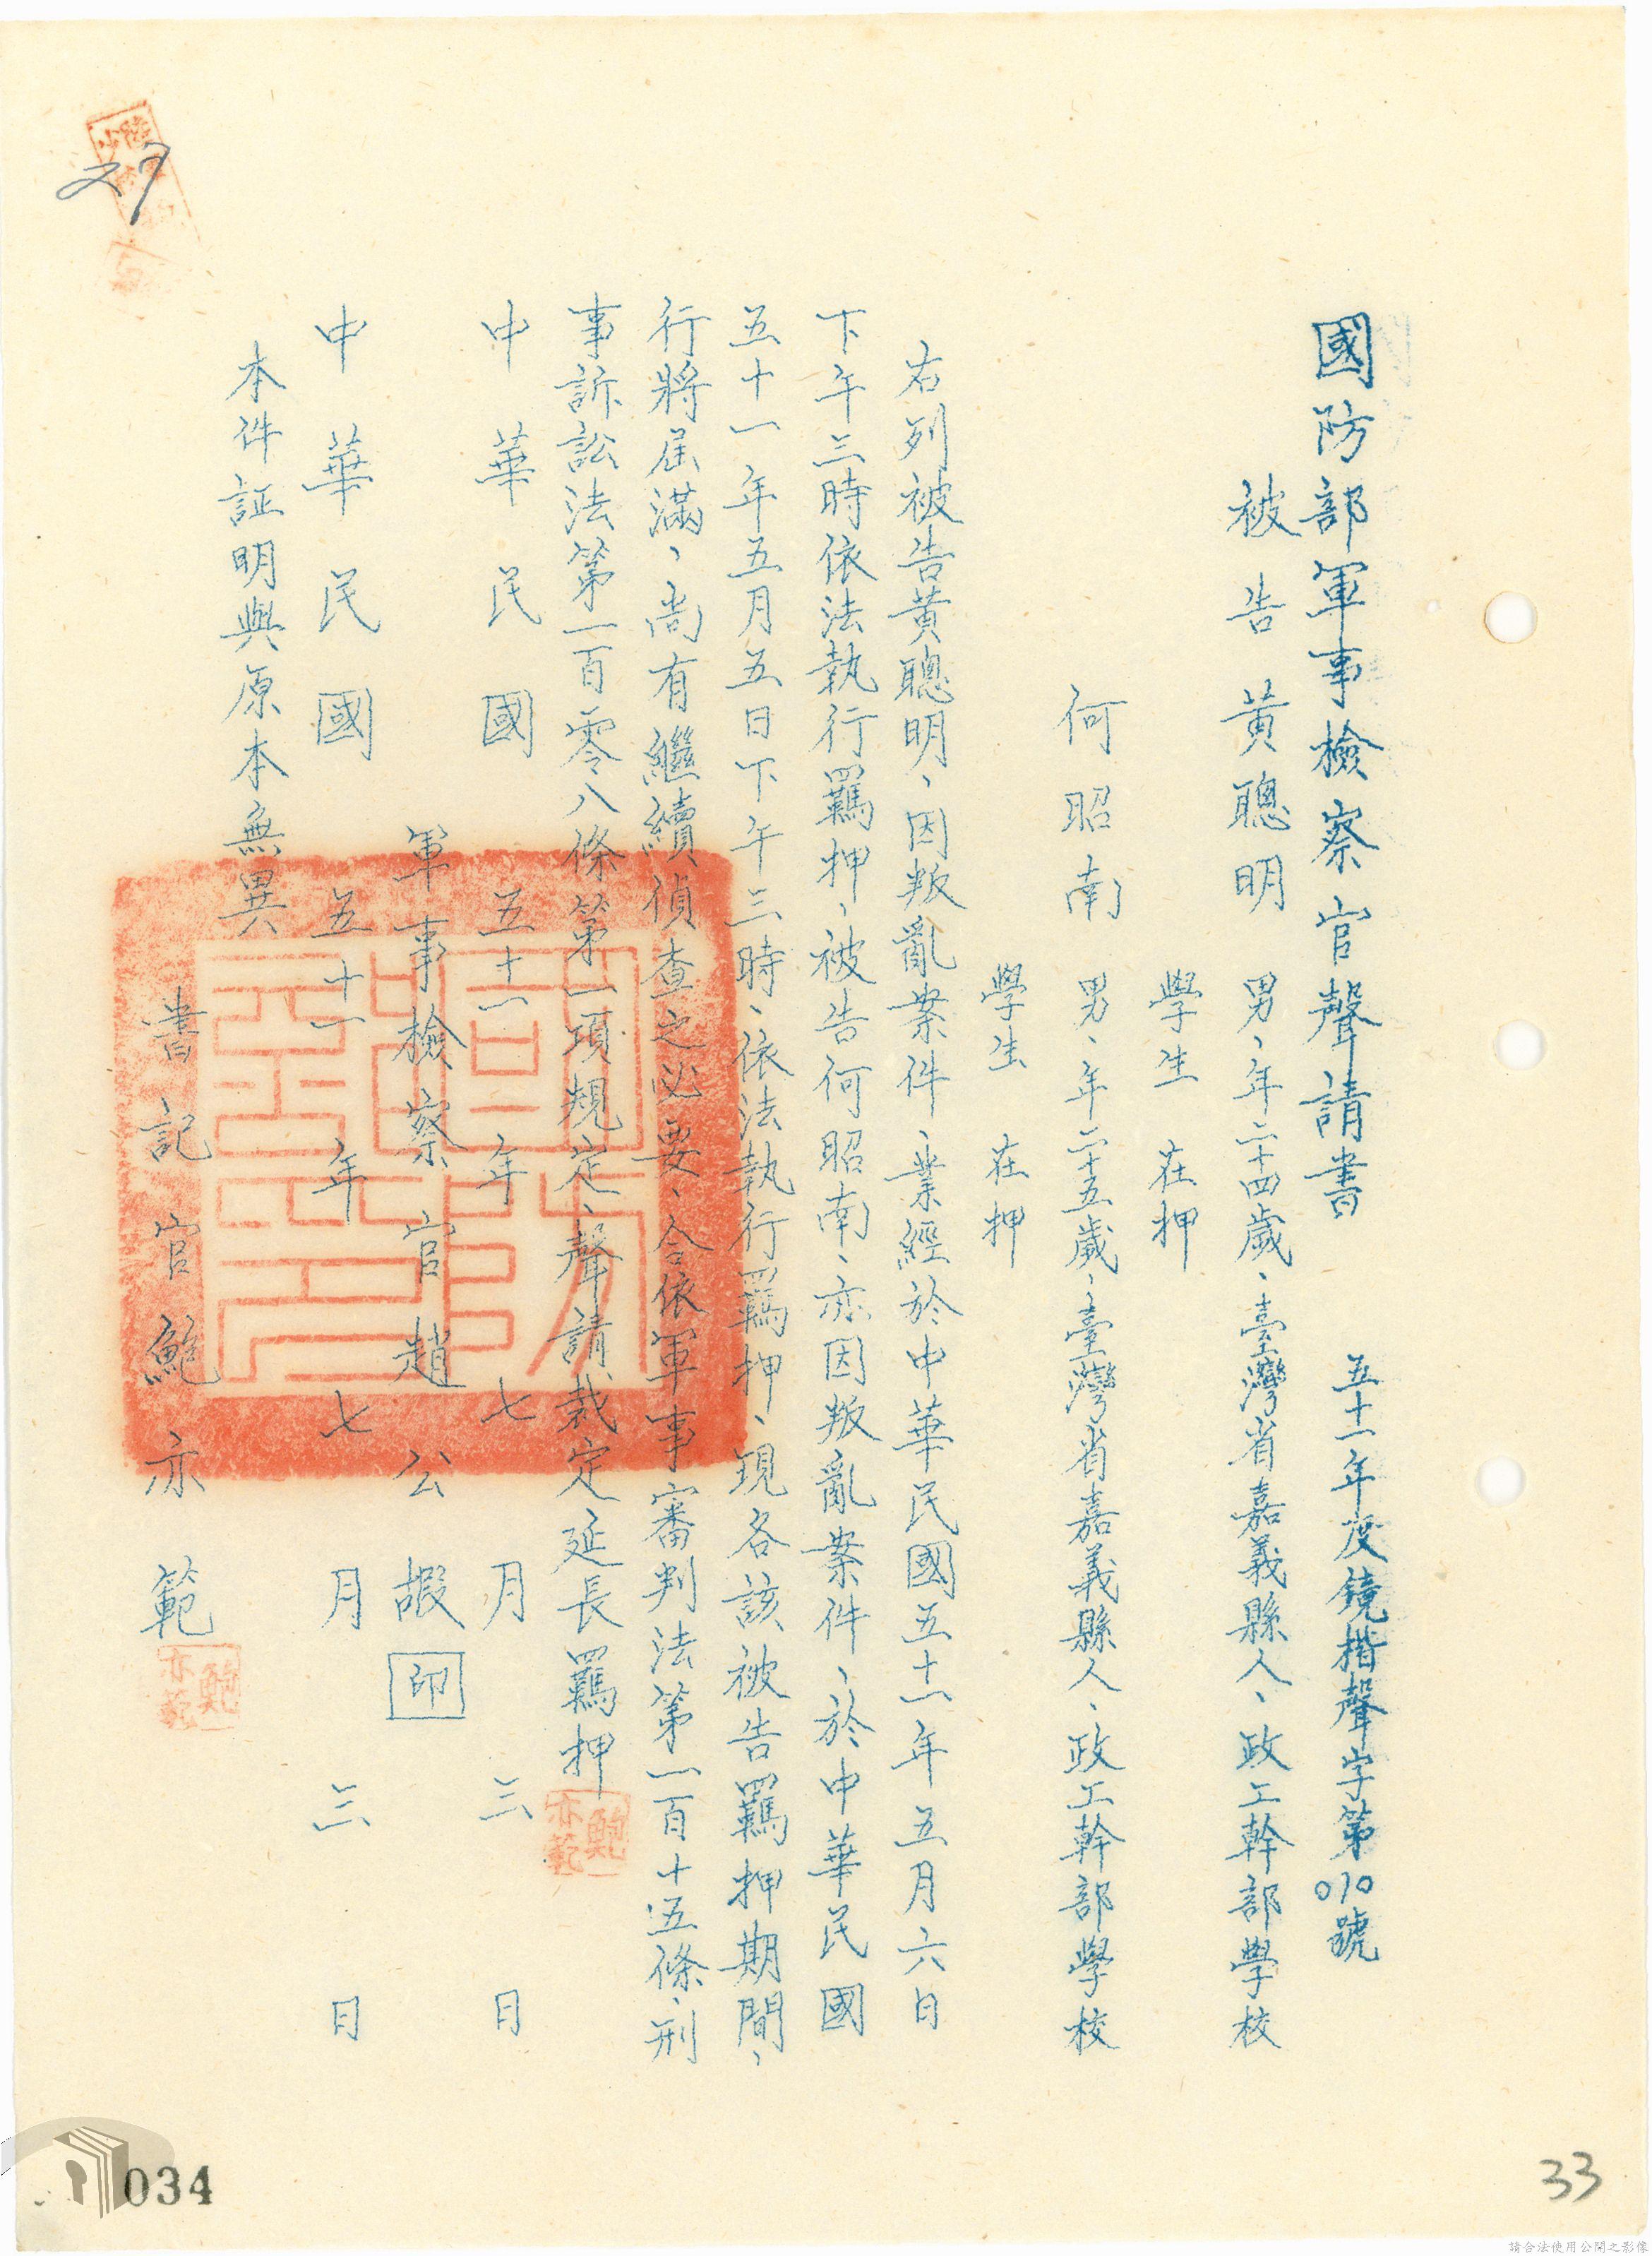 國防部軍事檢察官聲請書
五十一年度鏡楷聲字第010號
被告 黃聰明 男、年二十四歲、臺灣省嘉義縣人、政工幹部學校
學生 在押
何昭南 男、年二十五歲、臺灣省嘉義縣人、政工幹部學校
學生 在押
右列被告黃聰明、因叛亂案件、業經於中華民國五十一年五月六日
下午三時依法執行羈押、被告何昭南、亦因叛亂案件、於中華民國
五十一年五月五日下午三時、依法執行羈押、現各該被告羈押期間、
行將屆滿、尚有繼續偵查之必要、合依軍事審判法第一百十五條、刑
事訴訟法第一百零八條第一項規定、聲請裁定、延長羈押
鮑亦範
中華民國 五十一年 七月 三日
軍事檢察官 趙公嘏 印
中華民國 五十一年 七月 三日
本件証明與原本無異
書記官 鮑亦範
鮑亦範
27
33
034
請合法使用公開之影像